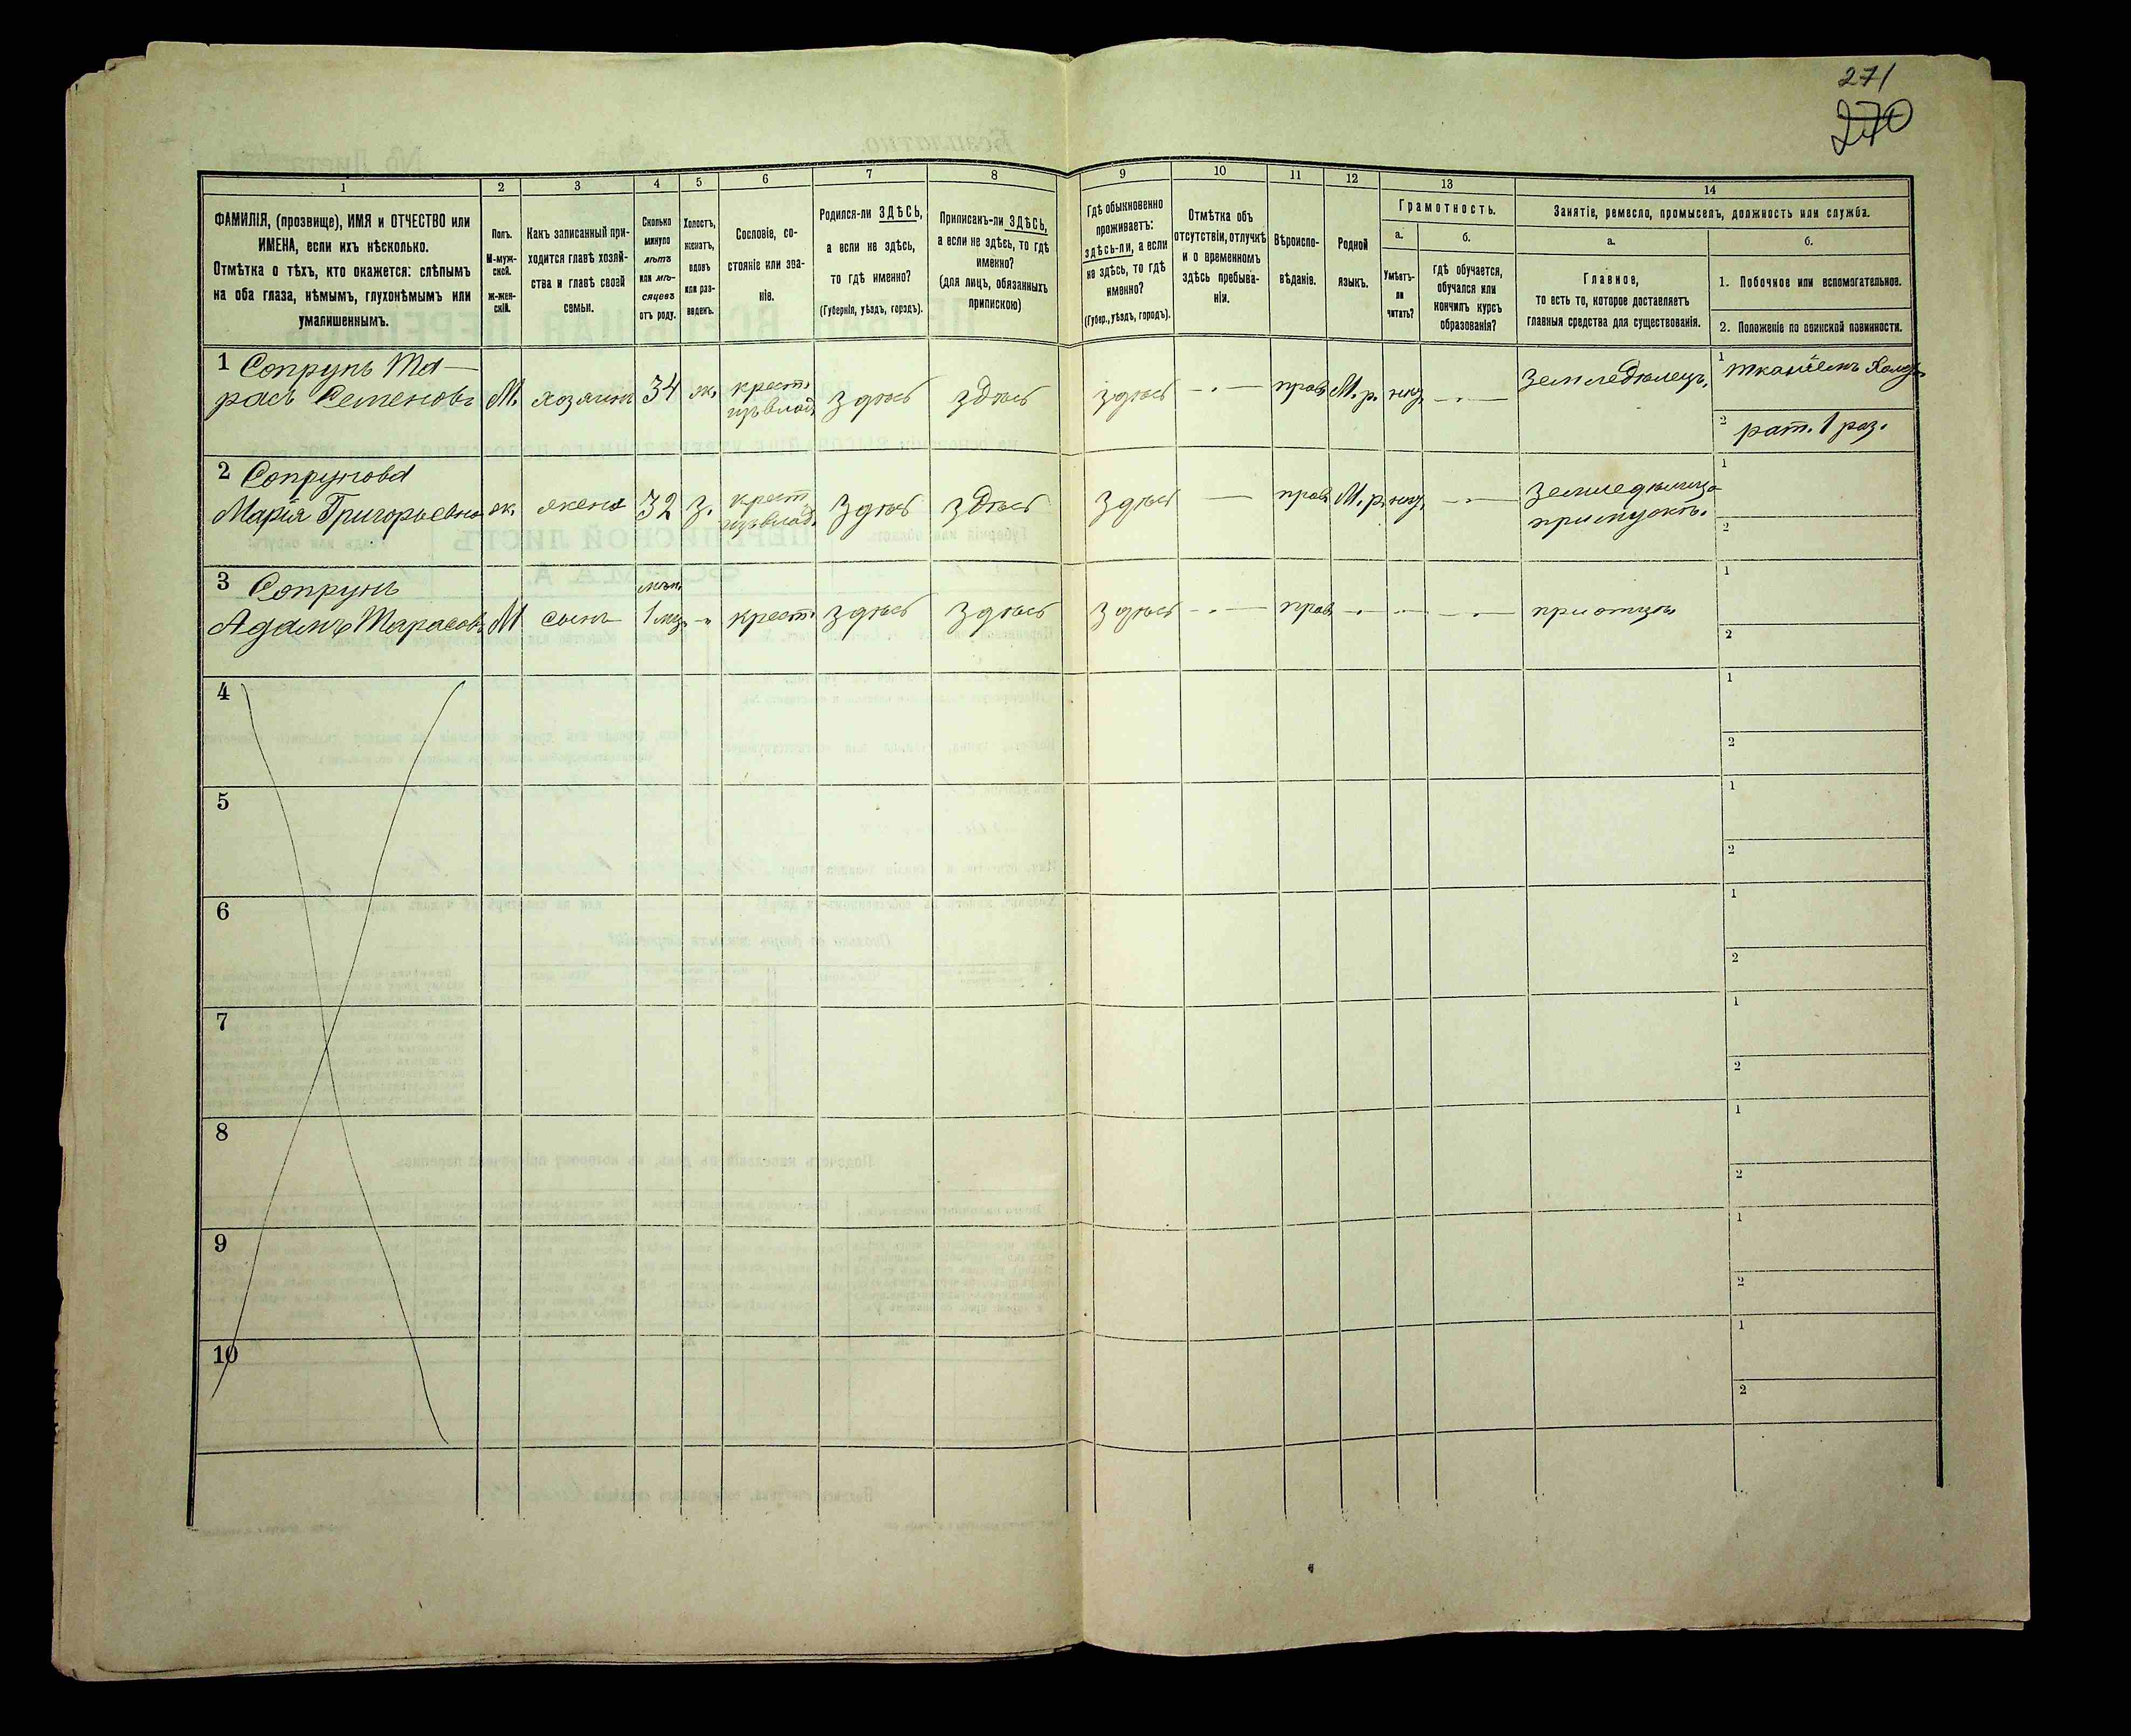 271
270
1 2 3 4 5 6 7 8 9 10 11 12 13 14
ФАМИЛІЯ, (прозвище), ИМЯ и ОТЧЕСТВО или
ИМЕНА, если ихъ нѣсколько.
Отмѣтка о тѣхъ, кто окажется: слѣпымъ
на оба глаза, нѣмымъ, глухонѣмымъ или
умалишеннымъ.
Полъ.
М-муж-
ской.
Ж-жен-
скій.
Какъ записанный при-
ходится главѣ хозяй-
ства и главѣ своей
семьи.
Сколько
минуло
лѣтъ
или мѣ-
сяцевъ
отъ роду.
Холостъ,
женатъ,
вдовъ
или раз-
веденъ.
Сословіе, со-
стояніе или зва-
ніе.
Родился-ли ЗДѢСЬ,
а если не здѣсь,
то гдѣ именно?
(Губернія, уѣздъ, городъ).
Приписанъ-ли ЗДѢСЬ,
а если не здѣсь, то гдѣ
именно?
(для лицъ, обязанныхъ
припискою)
Гдѣ обыкновенно
проживаетъ:
здѣсь-ли, а если
не здѣсь, то гдѣ
именно?
(Губер., уѣздъ, городъ).
Отмѣтка объ
отсутствіи, отлучкѣ
и о временномъ
здѣсь пребыва-
ніи.
Вѣроиспо-
вѣданіе.
Родной
языкъ.
Грамотность.
а.
Умѣетъ-
ли
читать?
б.
гдѣ обучается,
обучался или
кончилъ курсъ
образованія?
Занятіе, ремесло, промыселъ, должность или служба.
а.
Главное,
то есть то, которое доставляетъ
главныя средства для существованія.
б.
1. Побочное или вспомогательное.
2. Положеніе по воинской повинности.
1 Сопрунъ Та-
расъ Семеновъ М. хозяинъ 34 ж. крест. изъ влад. здѣсь здѣсь здѣсь — прав. М.р. нѣт — земледѣлецъ.
1 тканіемъ
2 рат. 1 раз.
2 Сопрунова
Марія Григорьевна ж. жена 32 з. крест. изъ влад. здѣсь здѣсь здѣсь — прав. М.р. — земледѣлица
1
2
3 Сопрунъ
Адамъ Тарасовъ М сынъ 1 мѣс. - крест. здѣсь здѣсь здѣсь — прав. — — — при отцѣ
1
2
4
1
2
5
1
2
6
1
2
7
1
2
8
1
2
9
1
2
10
1
2